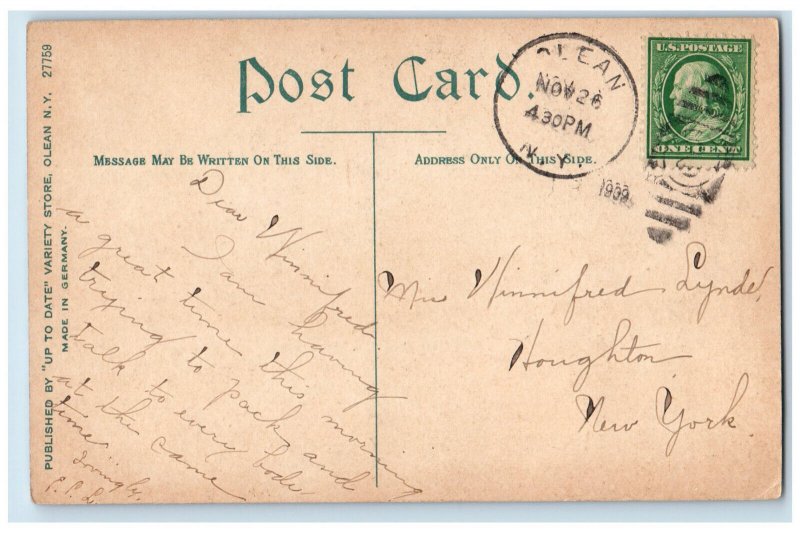 Post Card.
MESSAGE MAY BE WRITTEN ON THIS SIDE.
ADDRESS ONLY ON THIS SIDE.
PUBLISHED BY "UP TO DATE" VARIETY STORE, OLEAN N.Y. 27759
MADE IN GERMANY.
OLEAN
NOV 26
4 30 PM
N.Y.
U.S. POSTAGE
ONE CENT
Dear Winnifred
I am having
a great time this morning
trying to pack and
talk to every bodie
at the same
time.
Miss Winnifred Lynde,
Houghton
New York